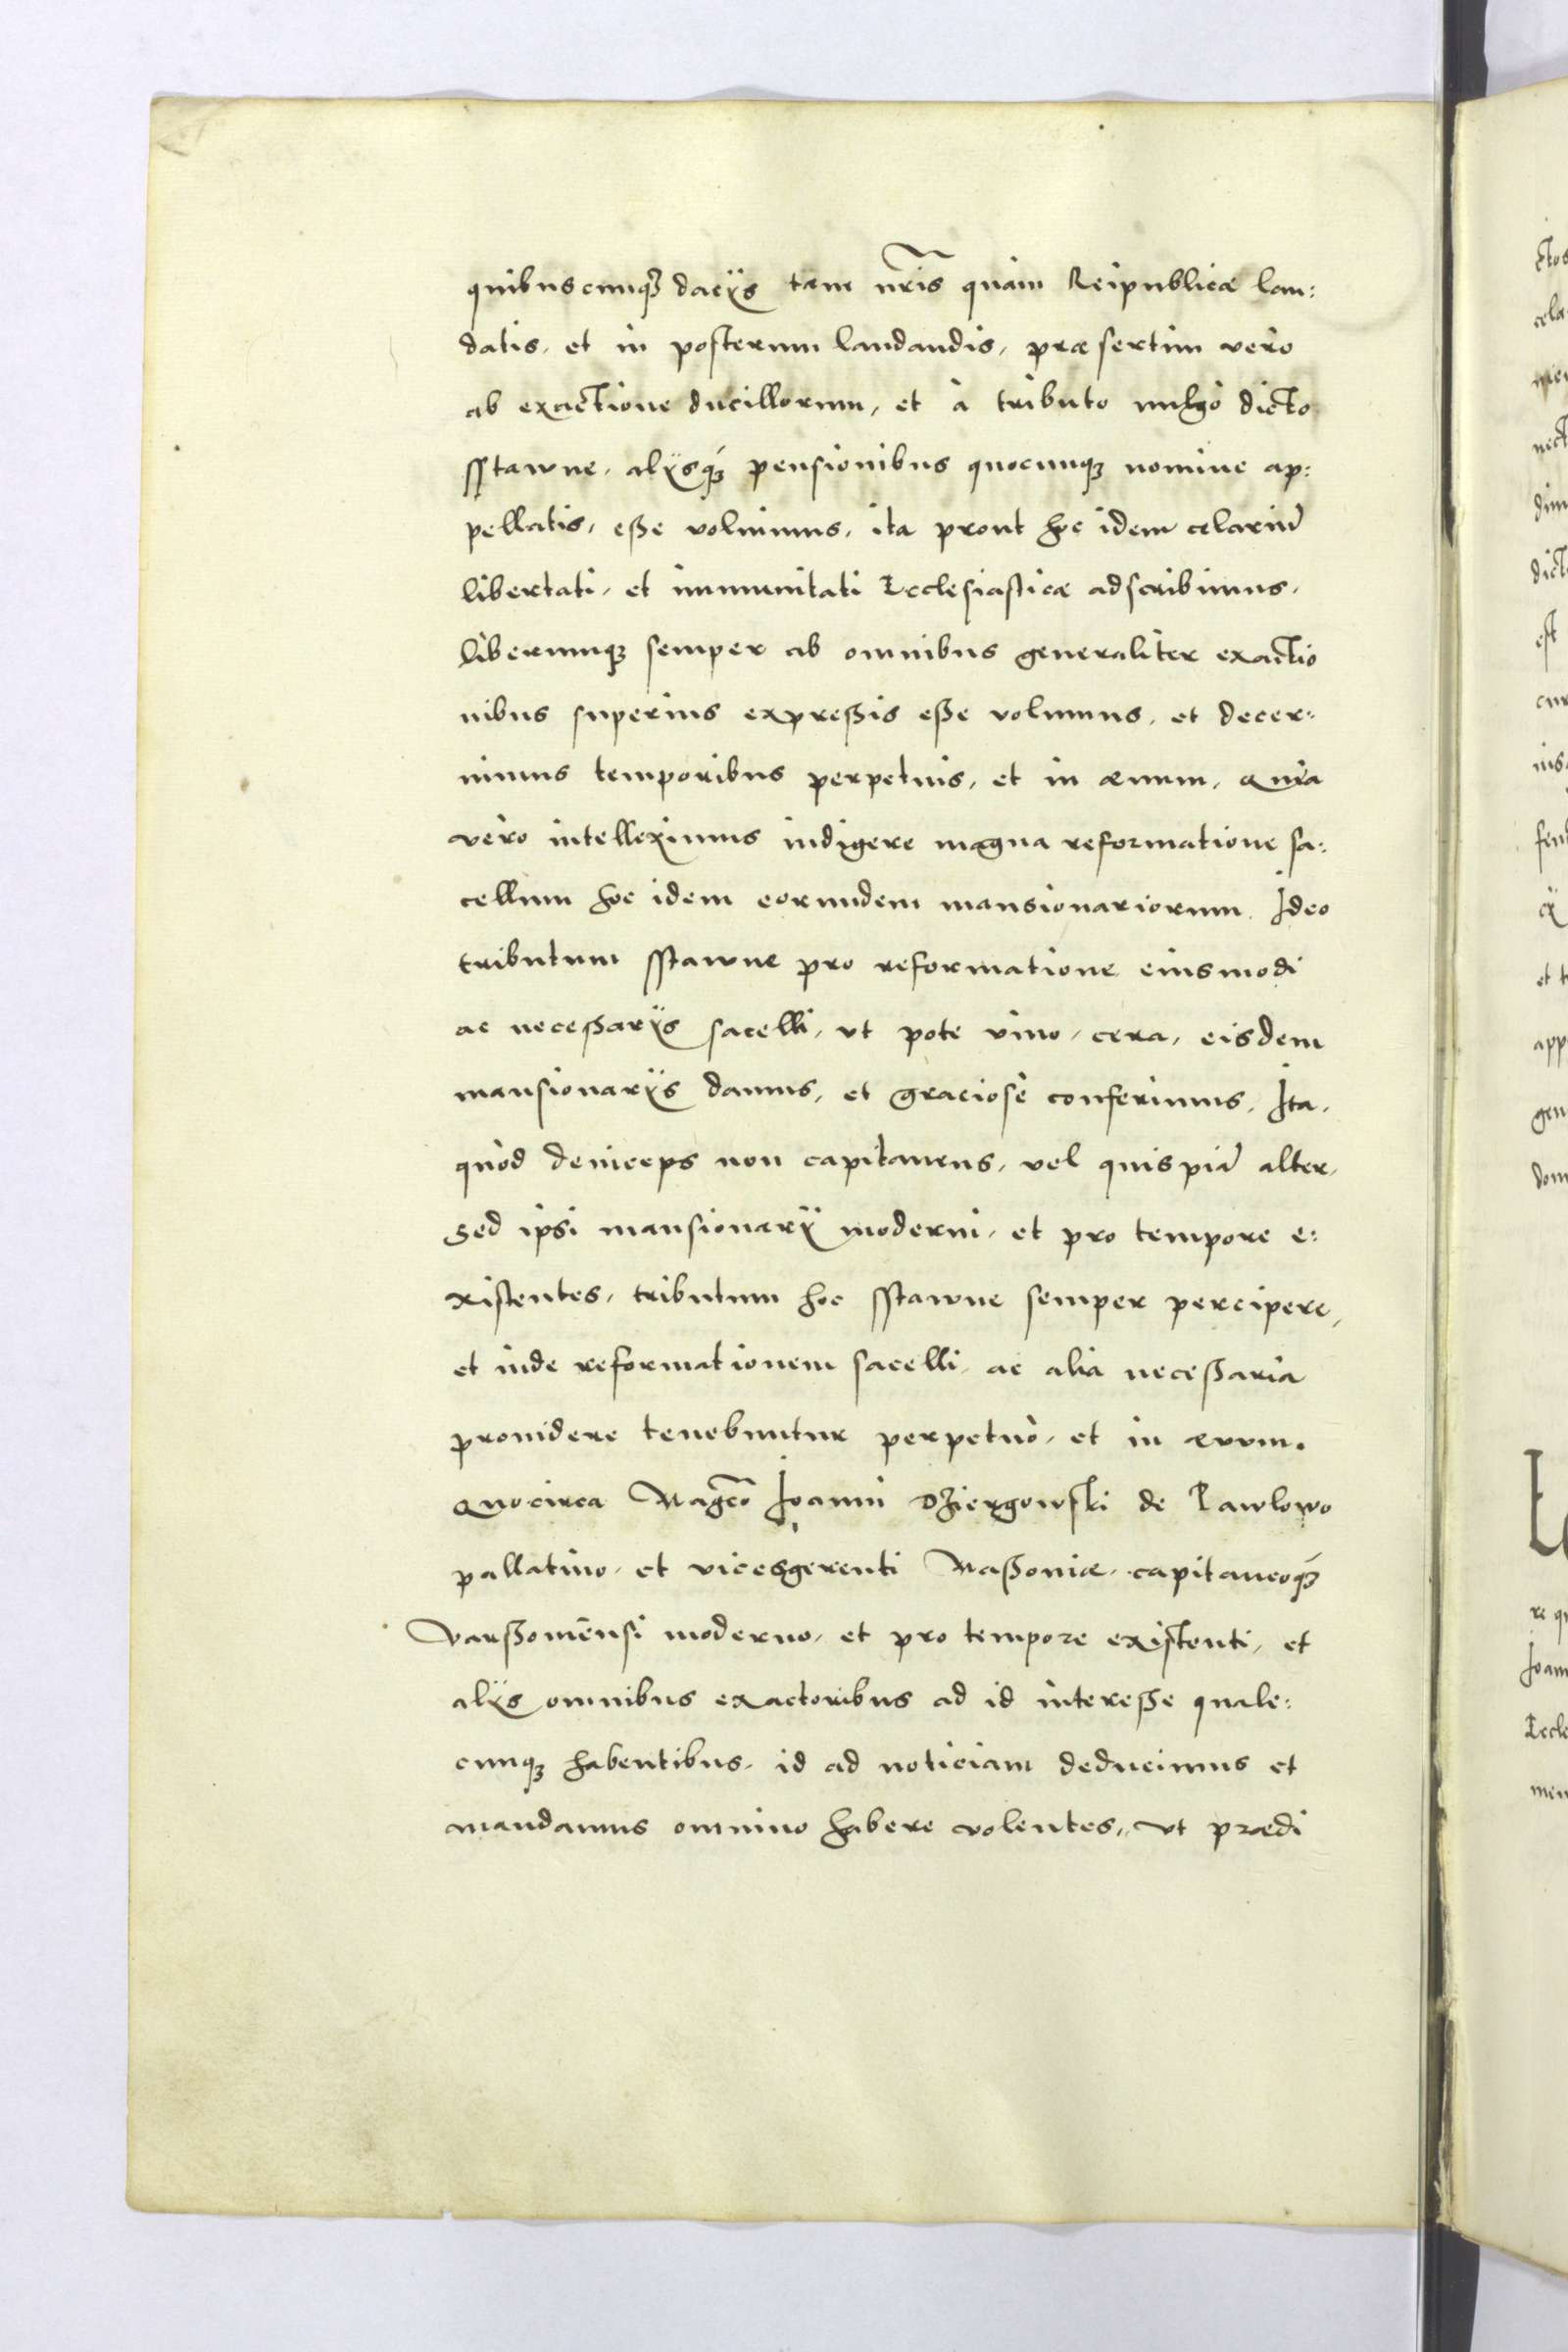 quibuscunq₃ dacijs tam nr̃is quàm Reipublicæ lau:
datis, et in posterum laudandis, præsertim vero
ab exactione ducillorum, et à tributo vulgò dicto
sstawne, alijsq₃́ pensionibus quocunq₃ nomine ap:
pellatis, eße volumus, ita prout hoc idem celariũ
libertati, et immunitati Ecclesiasticæ adscribimus,
liberumq₃ semper ab omnibus generaliter exactio
nibus superius expreßis eße volumus, et decer:
nimus temporibus perpetuis, et in æuum, Quia
vero intelleximus indigere magna reformatione sa:
cellum hoc idem eorundem mansionariorum. Ideo
tributum sstawne pro reformatione eiusmodi
ac neceßarijs sacelli, vt pote vino, cera, eisdem
mansionarijs damus, et graciosè conferimus, Ita,
quòd deniceps non capitaneus, vel quispiã alter,
sed ipsi mansionarij moderni, et pro tempore e:
xistentes, tributum hoc sstawne semper percipere,
et inde reformationem sacelli, ac alia neceßaria
prouidere tenebuntur perpetuò, et in æuum.
Quocirca Mag̃co Joanni Dziergowski de Pawlowo
pallatino, et vicesgerenti Maßoniæ, capitaneoq₃́
Varßouiẽnsi moderno, et pro tempore existenti, et
alijs omnibus exactoribus ad id intereße quale:
cunq₃ habentibus, id ad noticiam deducimus et
mandamus omnino habere volentes, vt prædi